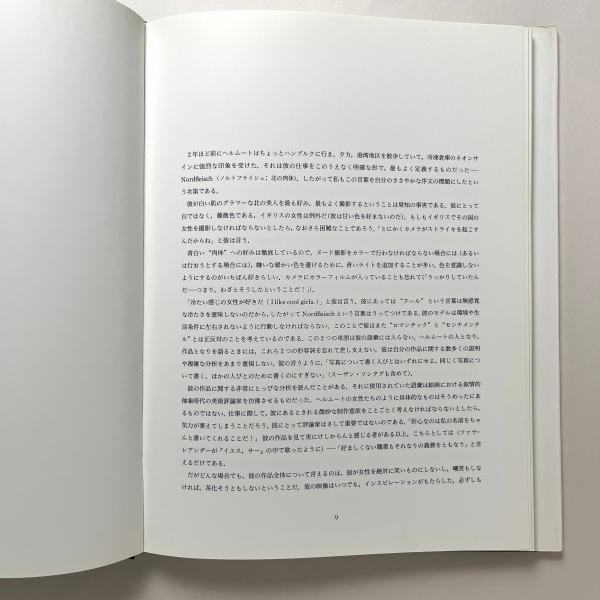 2年ほど前にヘルムートはちょっとハンブルクに行き，夕方，港湾地区を散歩していて，冷凍倉庫のネオンサ
インに強烈な印象を受けた。それは彼の仕事をこのうえなく明確な形で，最もよく定義するものだった──
Nordfleisch（ノルトフライシュ：北の肉体）。したがって私もこの言葉を自分のささやかな序文の標題にしたとい
う次第である。
彼が白い肌のグラマーな北の美人を最も好み，最もよく撮影するということは周知の事実である。彼にとって
白ではなく，薔薇色である，イギリスの女性は例外だ（彼は甘い色を好まないのだ）。もしもイギリスでその国の
女性を撮影しなければならないとしたら，なおさら困難なことであろう。「とにかくカメラがストライキを起こす
んだからね」と彼は言う。
青白い“肉体”への好みは徹底しているので，ヌード撮影をカラーで行わなければならない場合には（あるい
は行おうとする場合には），嫌いな暖かい色を避けるために，青いライトを追加することが多い。色を意識しない
ようにするのがいちばん好きらしい。カメラにカラーフィルムが入っていることも忘れて（「うっかりしていたん
だ──つまり，わざとそうしたということだ！」）。
「冷たい感じの女性が好きだ（I like cool girls.）」と彼は言う。彼にあっては“クール”という言葉は無感覚
な冷たさを意味しないのだから，したがってNordfleischという言葉はうってつけである。彼のモデルは環境や生
活条件に左右されないように行動しなければならない。このことで彼はまた“ロマンチック”と“センチメンタ
ル”とは正反対のことを考えているのである。この2つの単語は彼の語彙には入らない。ヘルムートの人となり，
作品となりを語るときには，これら2つの形容詞を忘れて差し支えない。彼は自分の作品に関する数多くの説明
や複雑な分析をあまり重視しない。彼の言うように，「写真について書く人びとはいずれにせよ，同じく写真につ
いて書く，ほかの人びとのために書くのにすぎない」（スーザン・ソンタグも含めて）。
彼の作品に関する非常にとっぴな分析を読んだことがある。それに使用されていた語彙は絵画における叙情的
抽象時代の美術評論家を彷彿させるものだった。ヘルムートの女性たちのように具体的なものはそうめったにあ
るものではない。仕事に際して，彼にあるとされる微妙な創作意欲をことごとく考えなければならないとしたら，
気力が萎えてしまうことだろう。彼にとって評論家はさして重要ではないのである。「肝心なのは私の名前をちゃ
んと書いてくれることだ！」 彼の作品を見て実にけしからんと感じる者がある以上，こちらとしては（ツァラ・
レアンダーが『イエス，サー』の中で歌ったように）──「好ましくない職業もそれなりの義務をともなう」と言
えるだけである。
だがどんな場合でも，彼の作品全体について言えるのは，彼が女性を絶対に笑いものにしないし，嘲笑もしな
ければ，茶化そうともしないということだ。彼の映像はいつでも，インスピレーションがもたらした，必ずしも
9